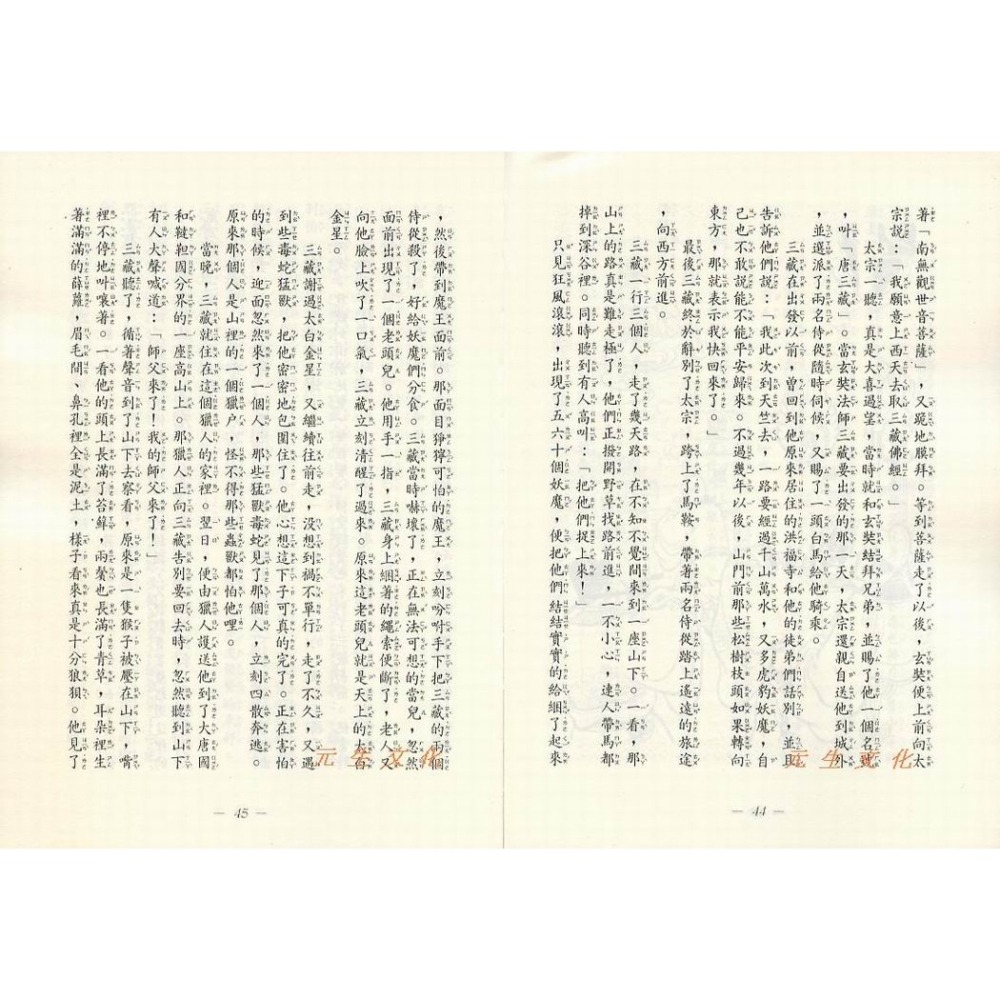 著「南無觀世音菩薩」，又跪地膜拜。等到菩薩走了以後，玄奘便上前向太
宗說：「我願意上西天去取三藏佛經。」
太宗一聽，真是大喜過望，當時就和玄奘結拜兄弟，並賜了他一個名號
，叫「唐三藏」。當玄奘法師三藏要出發的那一天，太宗還親自送他到城外
，並選派了兩名侍從隨時伺候，又賜了一頭白馬給他騎來。
三藏在出發以前，曾回到他原來居住的洪福寺和他的徒弟們話別，並且
告訴他們說：「我此次到天竺去，一路要經過千山萬水，又多虎豹妖魔，自
己也不敢說能不能平安歸來。不過幾年以後，山門前那些松樹枝頭如果轉向
東方，那就表示我快回來了。」
最後三藏終於辭別了太宗，跨上了馬鞍，帶著兩名侍從踏上遙遠的旅途
，向西方前進。
三藏一行三個人，走了幾天路，在不知不覺間來到一座山下。一看，那
山上的路真是難走極了，他們正撥開野草找路前進，一不小心，連人帶馬都
掉到深谷裡。同時聽到有人高叫：「把他們捉上來！」
只見狂風滾滾，出現了五六十個妖魔，便把他們結結實實的給綑了起來
元生文化
— 44 —
，然後帶到魔王面前。那面目猙獰可怕的魔王，立刻吩咐手下把三藏的兩個
侍從殺了，好給妖魔們分食。三藏當時嚇壞了，正在無法可想的當兒，忽然
面前出現了一個老頭兒。他用手一指，三藏身上綑著的繩索便斷了，老人又
向他臉上吹了一口氣，三藏立刻清醒了過來。原來這老頭兒就是天上的太白
金星。
三藏謝過太白金星，又繼續往前走，沒想到禍不單行，走了不久，又遇
到些毒蛇猛獸，把他密密地包圍住了。他心想這下子可真的完了。正在害怕
的時候，迎面忽然來了一個人，那些猛獸毒蛇見了那個人，立刻四散奔逃。
原來那個人是山裡的一個獵戶，怪不得那些蟲獸都怕他哩。
當晚，三藏就住在這個獵人的家裡。翌日，便由獵人護送他到了大唐國
和韃靼國分界的一座高山上。那獵人正向三藏告別要回去時，忽然聽到山下
有人大聲喊道：「師父來了！我的師父來了！」
三藏聽了，循著聲音到了山下去察看，原來是一隻猴子被壓在山下，嘴
裡不停地叫嚷著。一看他的頭上長滿了苔蘚，兩鬢也長滿了青草，耳朵裡生
著滿滿的薜蘿，眉毛間、鼻孔裡全是泥土，樣子看來真是十分狼狽。他見了
元生文化
— 45 —